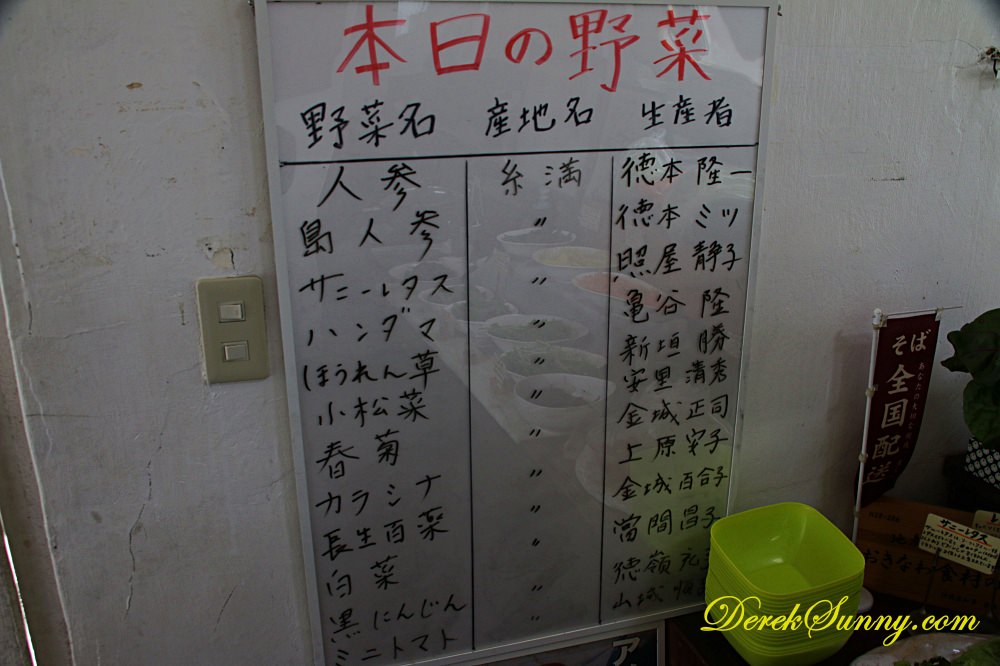 本日の野菜
野菜名 産地名 生産者
人参 糸満 徳本隆一
島人参 〃 徳本ミツ
サニーレタス 〃 照屋静子
ハンダマ 〃 亀谷隆
ほうれん草 〃 新垣勝
小松菜 〃 安里清秀
春菊 〃 金城正司
カラシナ 〃 上原安子
長生百薬 〃 金城百合子
白菜 〃 當間昌子
黒にんじん 〃 徳嶺元
ミニトマト 〃 山城
そば
全国配送
サニーレタス
おきなわ食材の
DerekSunny.com